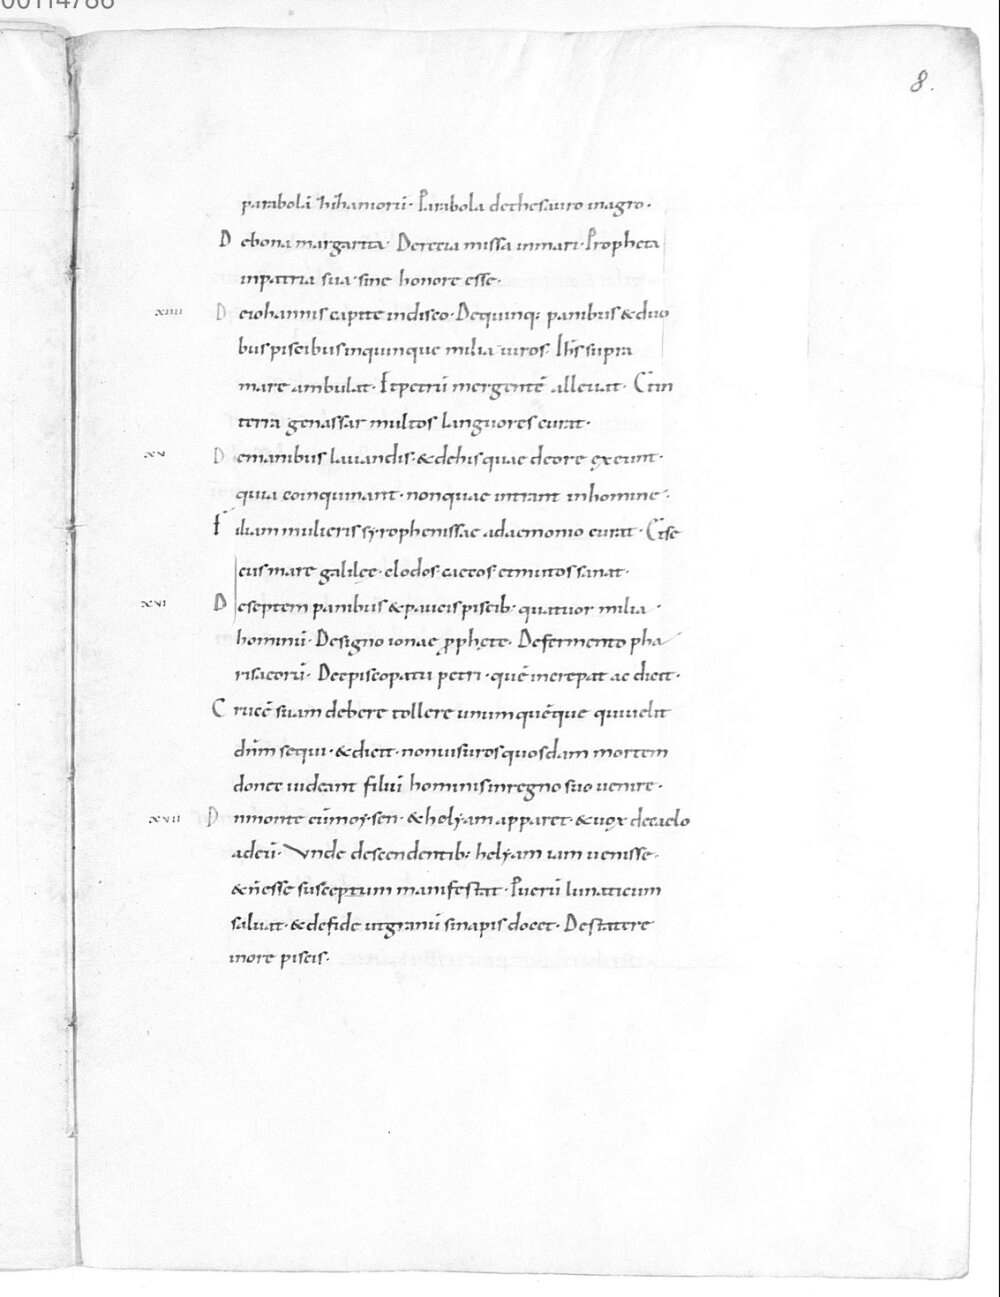 00114786
8.
parabolā hihaniorū· Parabola dethesauro inagro·
D ebona margarita· Deretia missa inmari· Propheta
inpatria sua sine honore esse·
xiiii D eiohannis capite indisco· Dequinq; panibus & duo
bus piscibus inquinque milia uiros· Ihs supra
mare ambulat· Et petrū mergentē alleuat· Et in
terra genassar multos languores curat·
xv D emanibus lauandis· & dehis quae deore exeunt·
quia coinquinant· non quae intrant inhomine·
F iliam mulieris syrophenissae adaemonio curat· Et se
cus mare galilee· clodos caecos et mutos sanat·
xvi D eseptem panibus & paucis piscib· quatuor milia·
hominū· Designo ionae pphete· Defermento pha
risaeorū· Deepiscopatu petri· quē increpat ac dicit·
C rucē suam debere tollere unum quēque qui uelit
dnm sequi· & dicit· non uisuros quosdam mortem
donec uideant filiū hominis inregno suo uenire·
xvii D nmonte cū moysen· & helyam apparet· & uox decaelo
adeū· Vnde descendentib; helyam iam uenisse·
& n esse susceptum manifestat· Puerū lunaticum
saluat· & defide ut granū sinapis docet· Destatere
inore piscis·